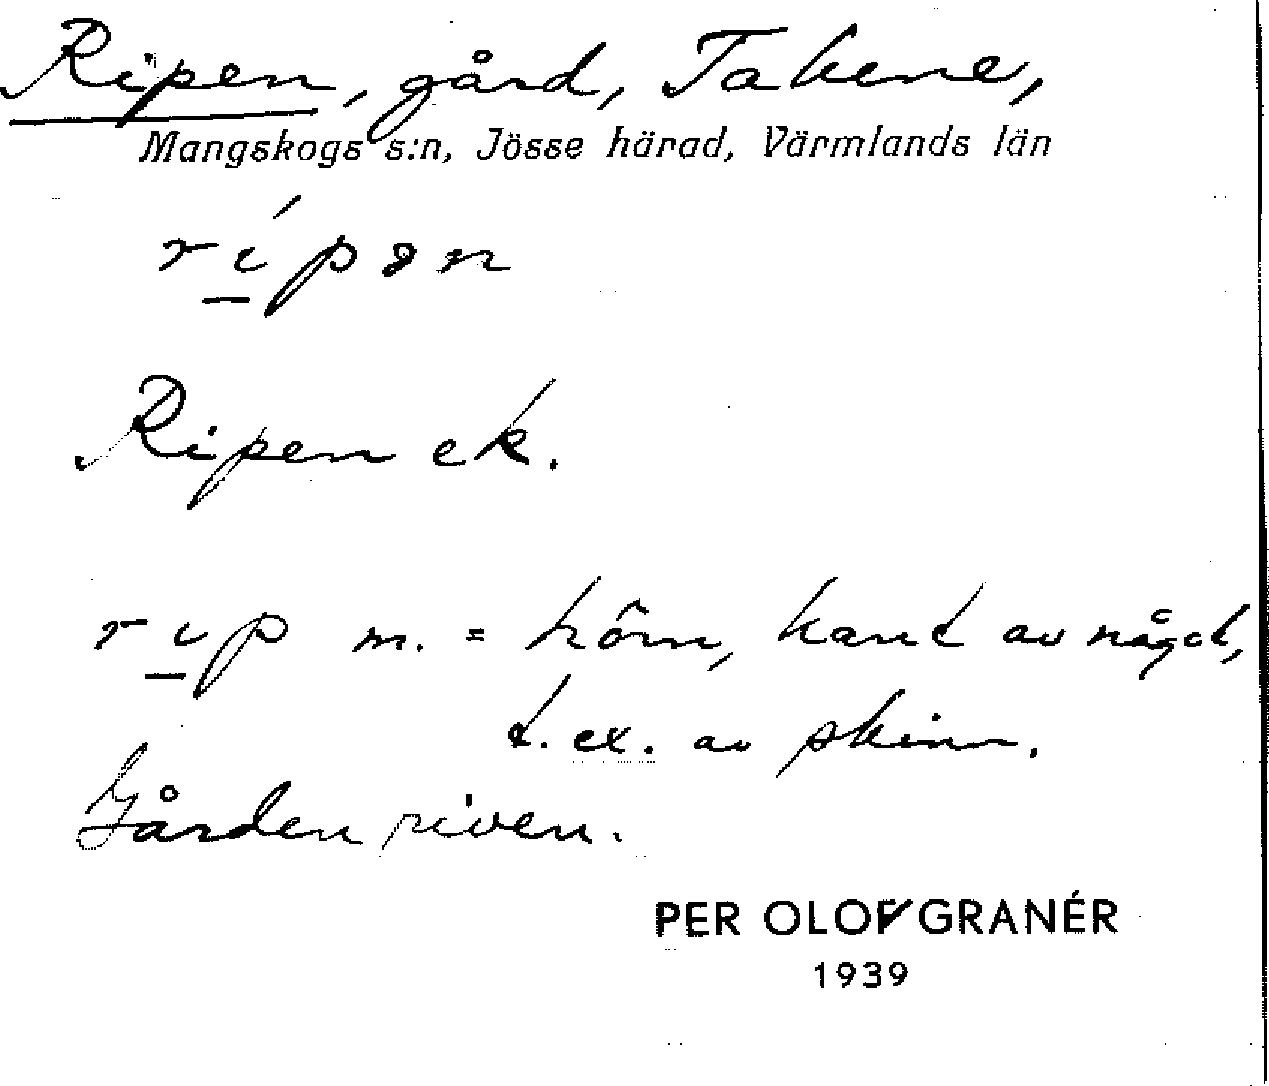 Ripen, gård, Takene,
Mangskogs s:n, Jösse härad, Värmlands län
rípən
Ripen ek.
rip m. = hörn, kant av något,
t.ex. av skinn.
Gården riven.
PER OLOF GRANÉR
1939